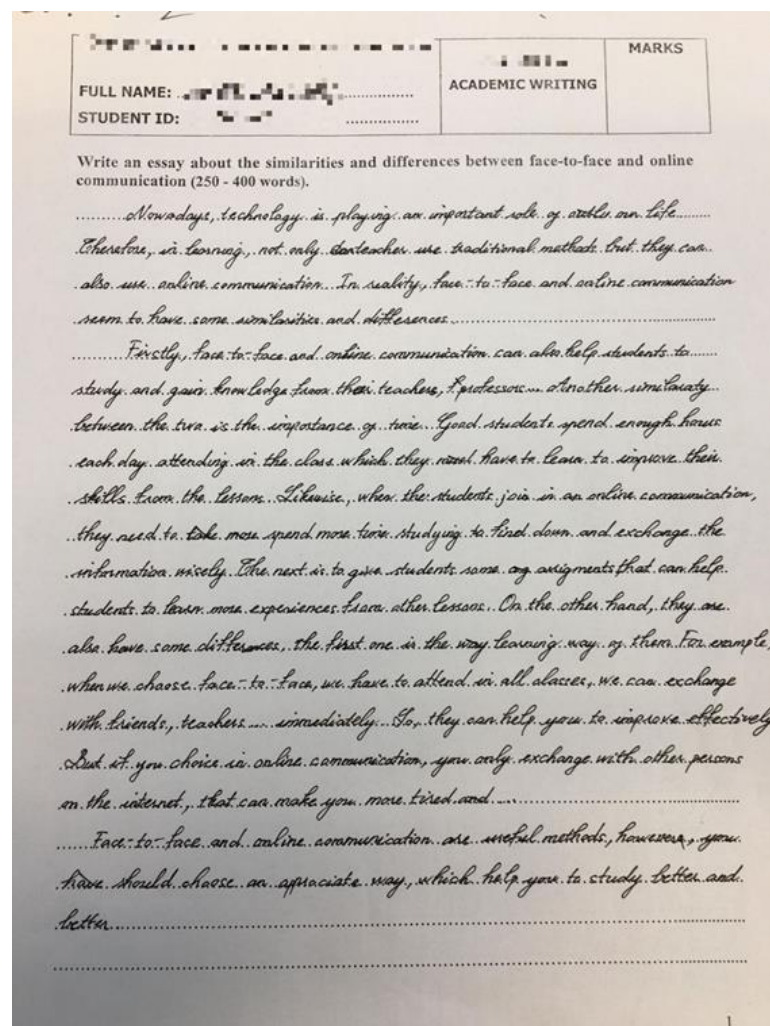 MARKS
FULL NAME:
ACADEMIC WRITING
STUDENT ID:
Write an essay about the similarities and differences between face-to-face and online
communication (250 - 400 words).
Nowadays, technology is playing an important role of our life
Therefore, in learning, not only teacher use traditional methods but they can
also use online communication. In reality, face-to-face and online communication
seem to have some similarities and differences
Firstly, face-to-face and online communication can also help students to
study and gain knowledge from their teachers, professors... Another similaraty
between the two is the importance of time. Good students spend enough hours
each day attending in the class which they have to learn to improve their
skills from the lesson. Likewise, when the students join in an online communication,
they need to spend more time studying to find down and exchange the
information wisely. The next is to give students some assigments that can help
students to learn more experiences from other lessons. On the other hand, they are
also have some differences, the first one is the learning way of them. For example,
when we choose face-to-face, we have to attend in all classes, we can exchange
with friends, teachers... immediately. So, they can help you to improve effectively
But if you choice in online communication, you only exchange with other persons
on the internet, that can make you more tired and...
Face-to-face and online communication are useful methods, however, you
should choose an appraciate way, which help you to study better and
better
1